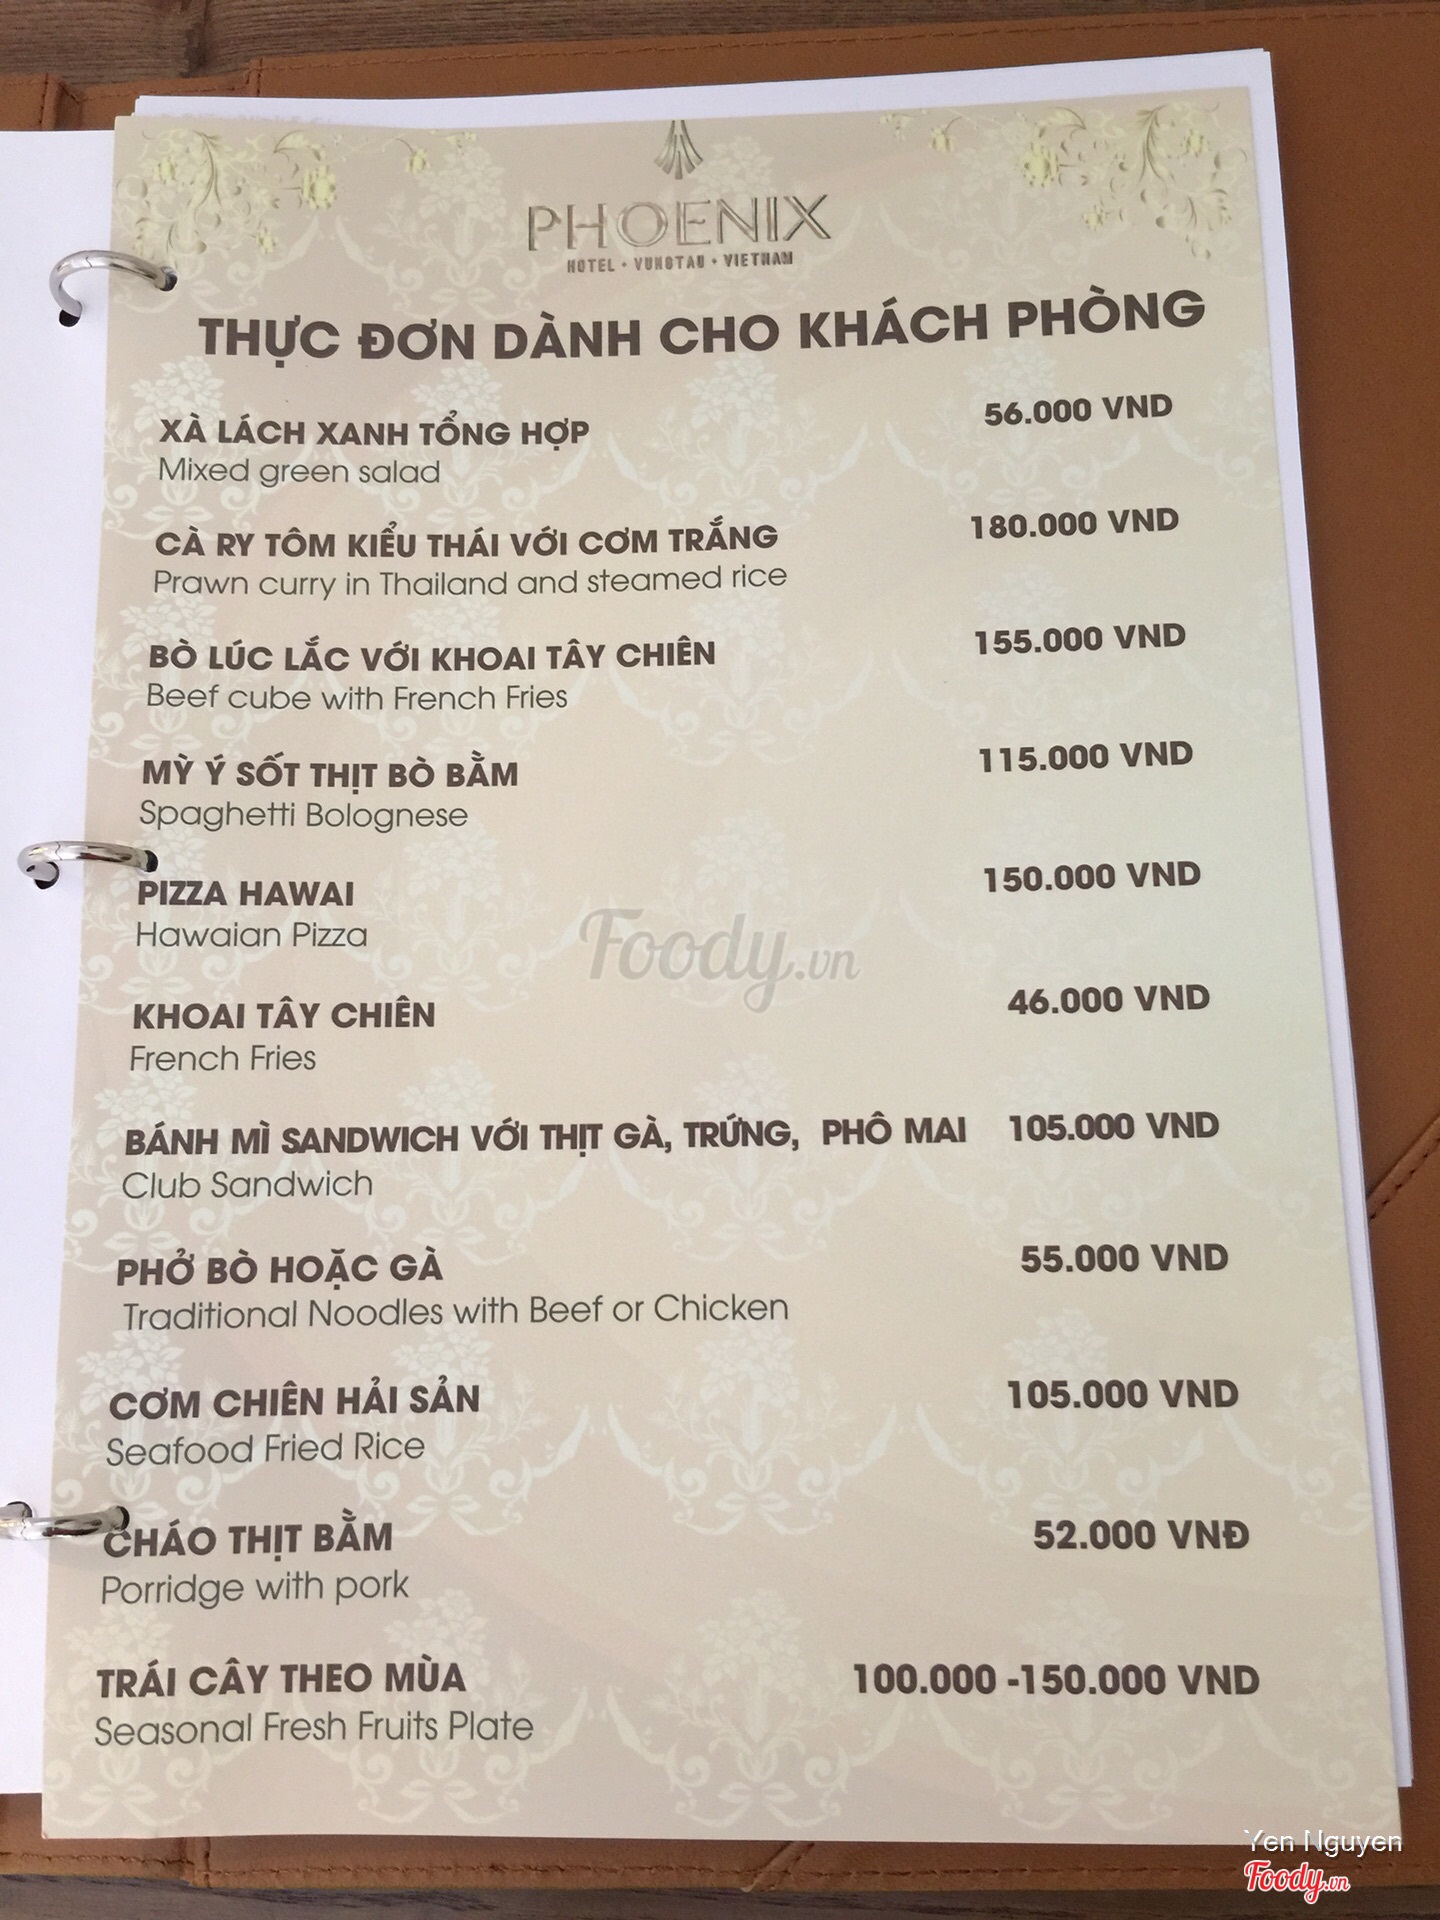 PHOENIX
HOTEL • VUNGTAU • VIETNAM
THỰC ĐƠN DÀNH CHO KHÁCH PHÒNG
XÀ LÁCH XANH TỔNG HỢP 56.000 VND
Mixed green salad
CÀ RY TÔM KIỂU THÁI VỚI CƠM TRẮNG 180.000 VND
Prawn curry in Thailand and steamed rice
BÒ LÚC LẮC VỚI KHOAI TÂY CHIÊN 155.000 VND
Beef cube with French Fries
MỲ Ý SỐT THỊT BÒ BẰM 115.000 VND
Spaghetti Bolognese
PIZZA HAWAI 150.000 VND
Hawaian Pizza
Foody.vn
KHOAI TÂY CHIÊN 46.000 VND
French Fries
BÁNH MÌ SANDWICH VỚI THỊT GÀ, TRỨNG, PHÔ MAI 105.000 VND
Club Sandwich
PHỞ BÒ HOẶC GÀ 55.000 VND
Traditional Noodles with Beef or Chicken
CƠM CHIÊN HẢI SẢN 105.000 VND
Seafood Fried Rice
CHÁO THỊT BẰM 52.000 VNĐ
Porridge with pork
TRÁI CÂY THEO MÙA 100.000 -150.000 VND
Seasonal Fresh Fruits Plate
Yen Nguyen
Foody.vn